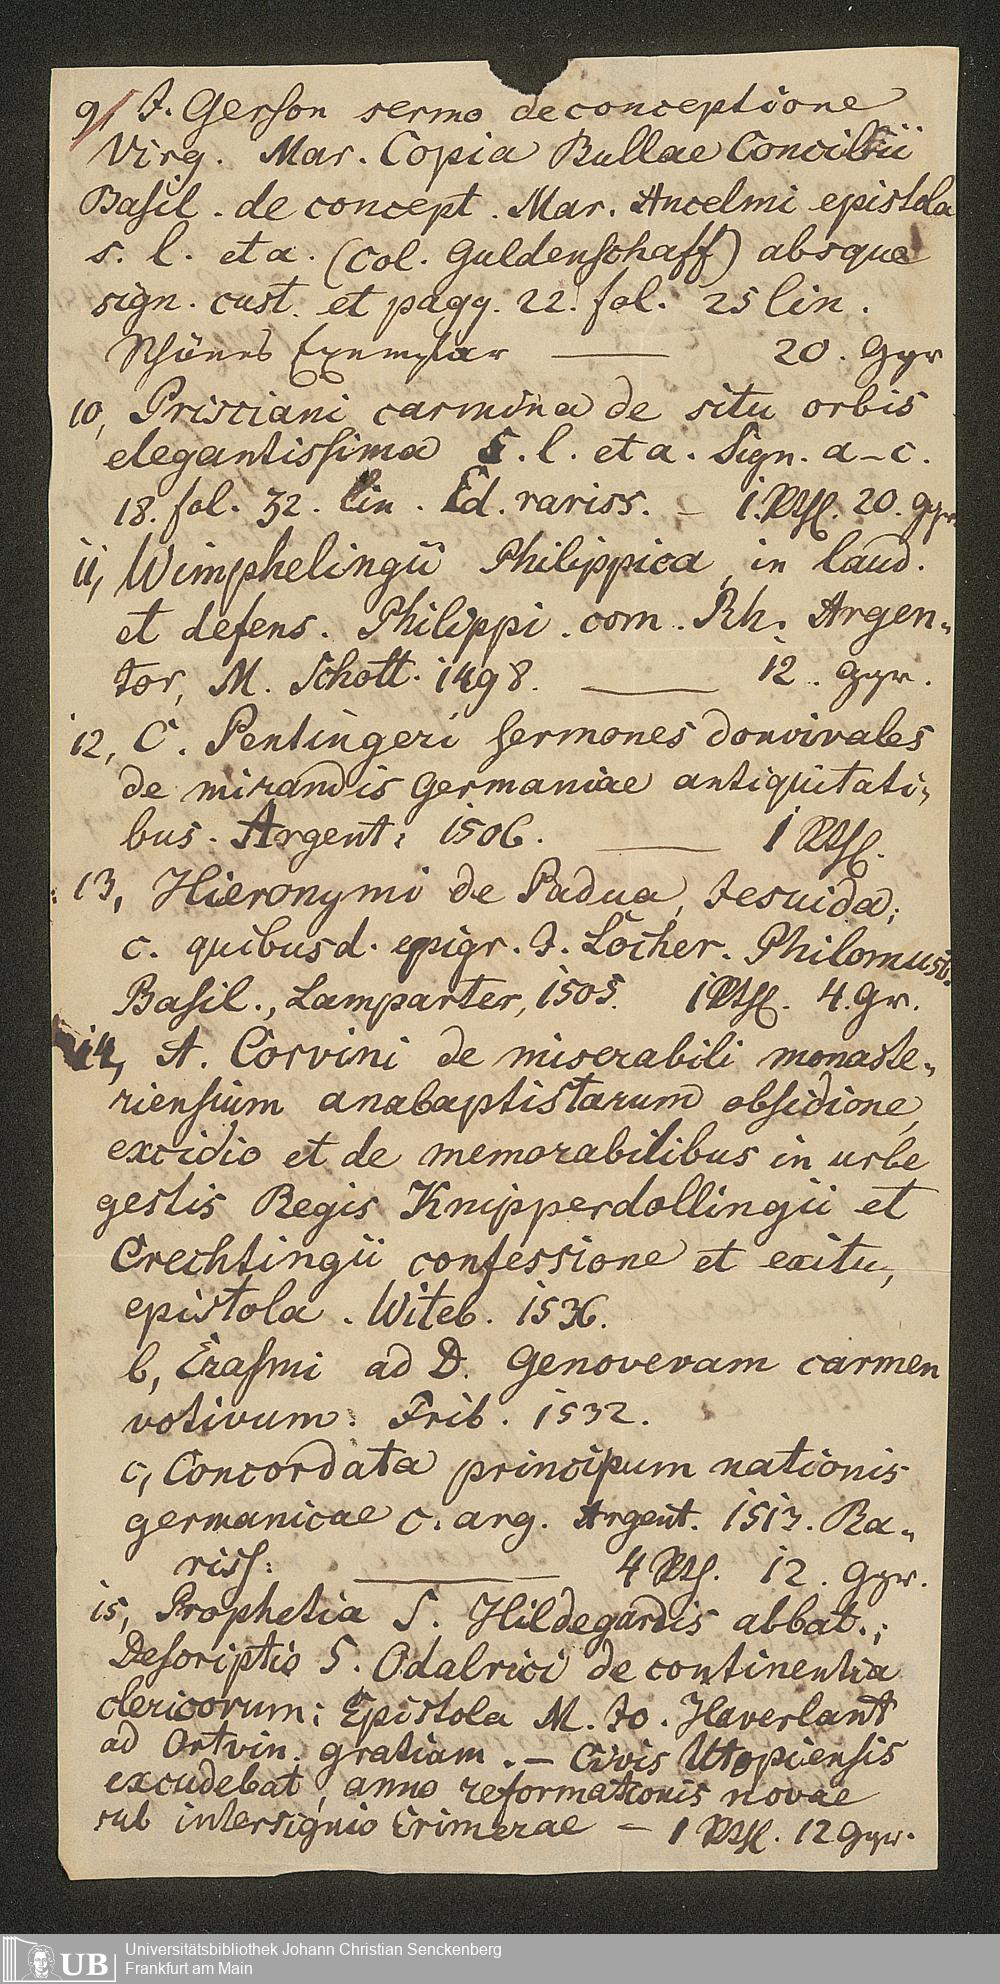 9/ J. Gerson sermo de conceptione
Virg. Mar. Copia Bullae Concilii
Basil. de concept. Mar. Ancelmi epistola
s. l. et a. (Col. Guldenschaff) absque
sign. cust. et pagg. 22. fol. 25 lin.
Schönes Exemplar — 20. Ggr
10, Prisciani carmina de situ orbis
elegantissima S. l. et a. Sign. a-c.
18. fol. 32. lin. Ed. rariss. — 1. Rthl. 20. Ggr
11, Wimphelingii Philippica, in laud.
et defens. Philippi. com. Rh. Argen-
tor, M. Schott. 1498. — 12. Ggr.
12, C. Pentingeri sermones convivales
de mirandis Germaniae antiquitati-
bus. Argent: 1506. — 1 Rthl.
13, Hieronymi de Padua, Jesuida,
c. quibusd. epigr. J. Locher. Philomusi.
Basil., Lamparter, 1505. 1 Rthl. 4. Gr.
14, A. Corvini de miserabili monaste-
riensium anabaptistarum obsidione,
excidio et de memorabilibus in urbe
gestis Regis Knipperdollingii et
Crechtingii confessione et exitu,
epistola. Witeb. 1536.
b, Erasmi ad D. Genovevam carmen
votivum. Frib. 1532.
c, Concordata principum nationis
germanicae c. arg. Argent. 1513. Ra-
riss: — 4 Rth. 12. Ggr.
15, Prophetia S. Hildegardis abbat.;
Descriptio S. Odalrici de continentia
clericorum; Epistola M. Jo. Haverlant
ad Ortvin. gratiam. — Civis Utopiensis
excudebat, anno reformationis novae
sub intersignio Erimerae — 1 Rthl. 12 Ggr.
UB
Universitätsbibliothek Johann Christian Senckenberg
Frankfurt am Main